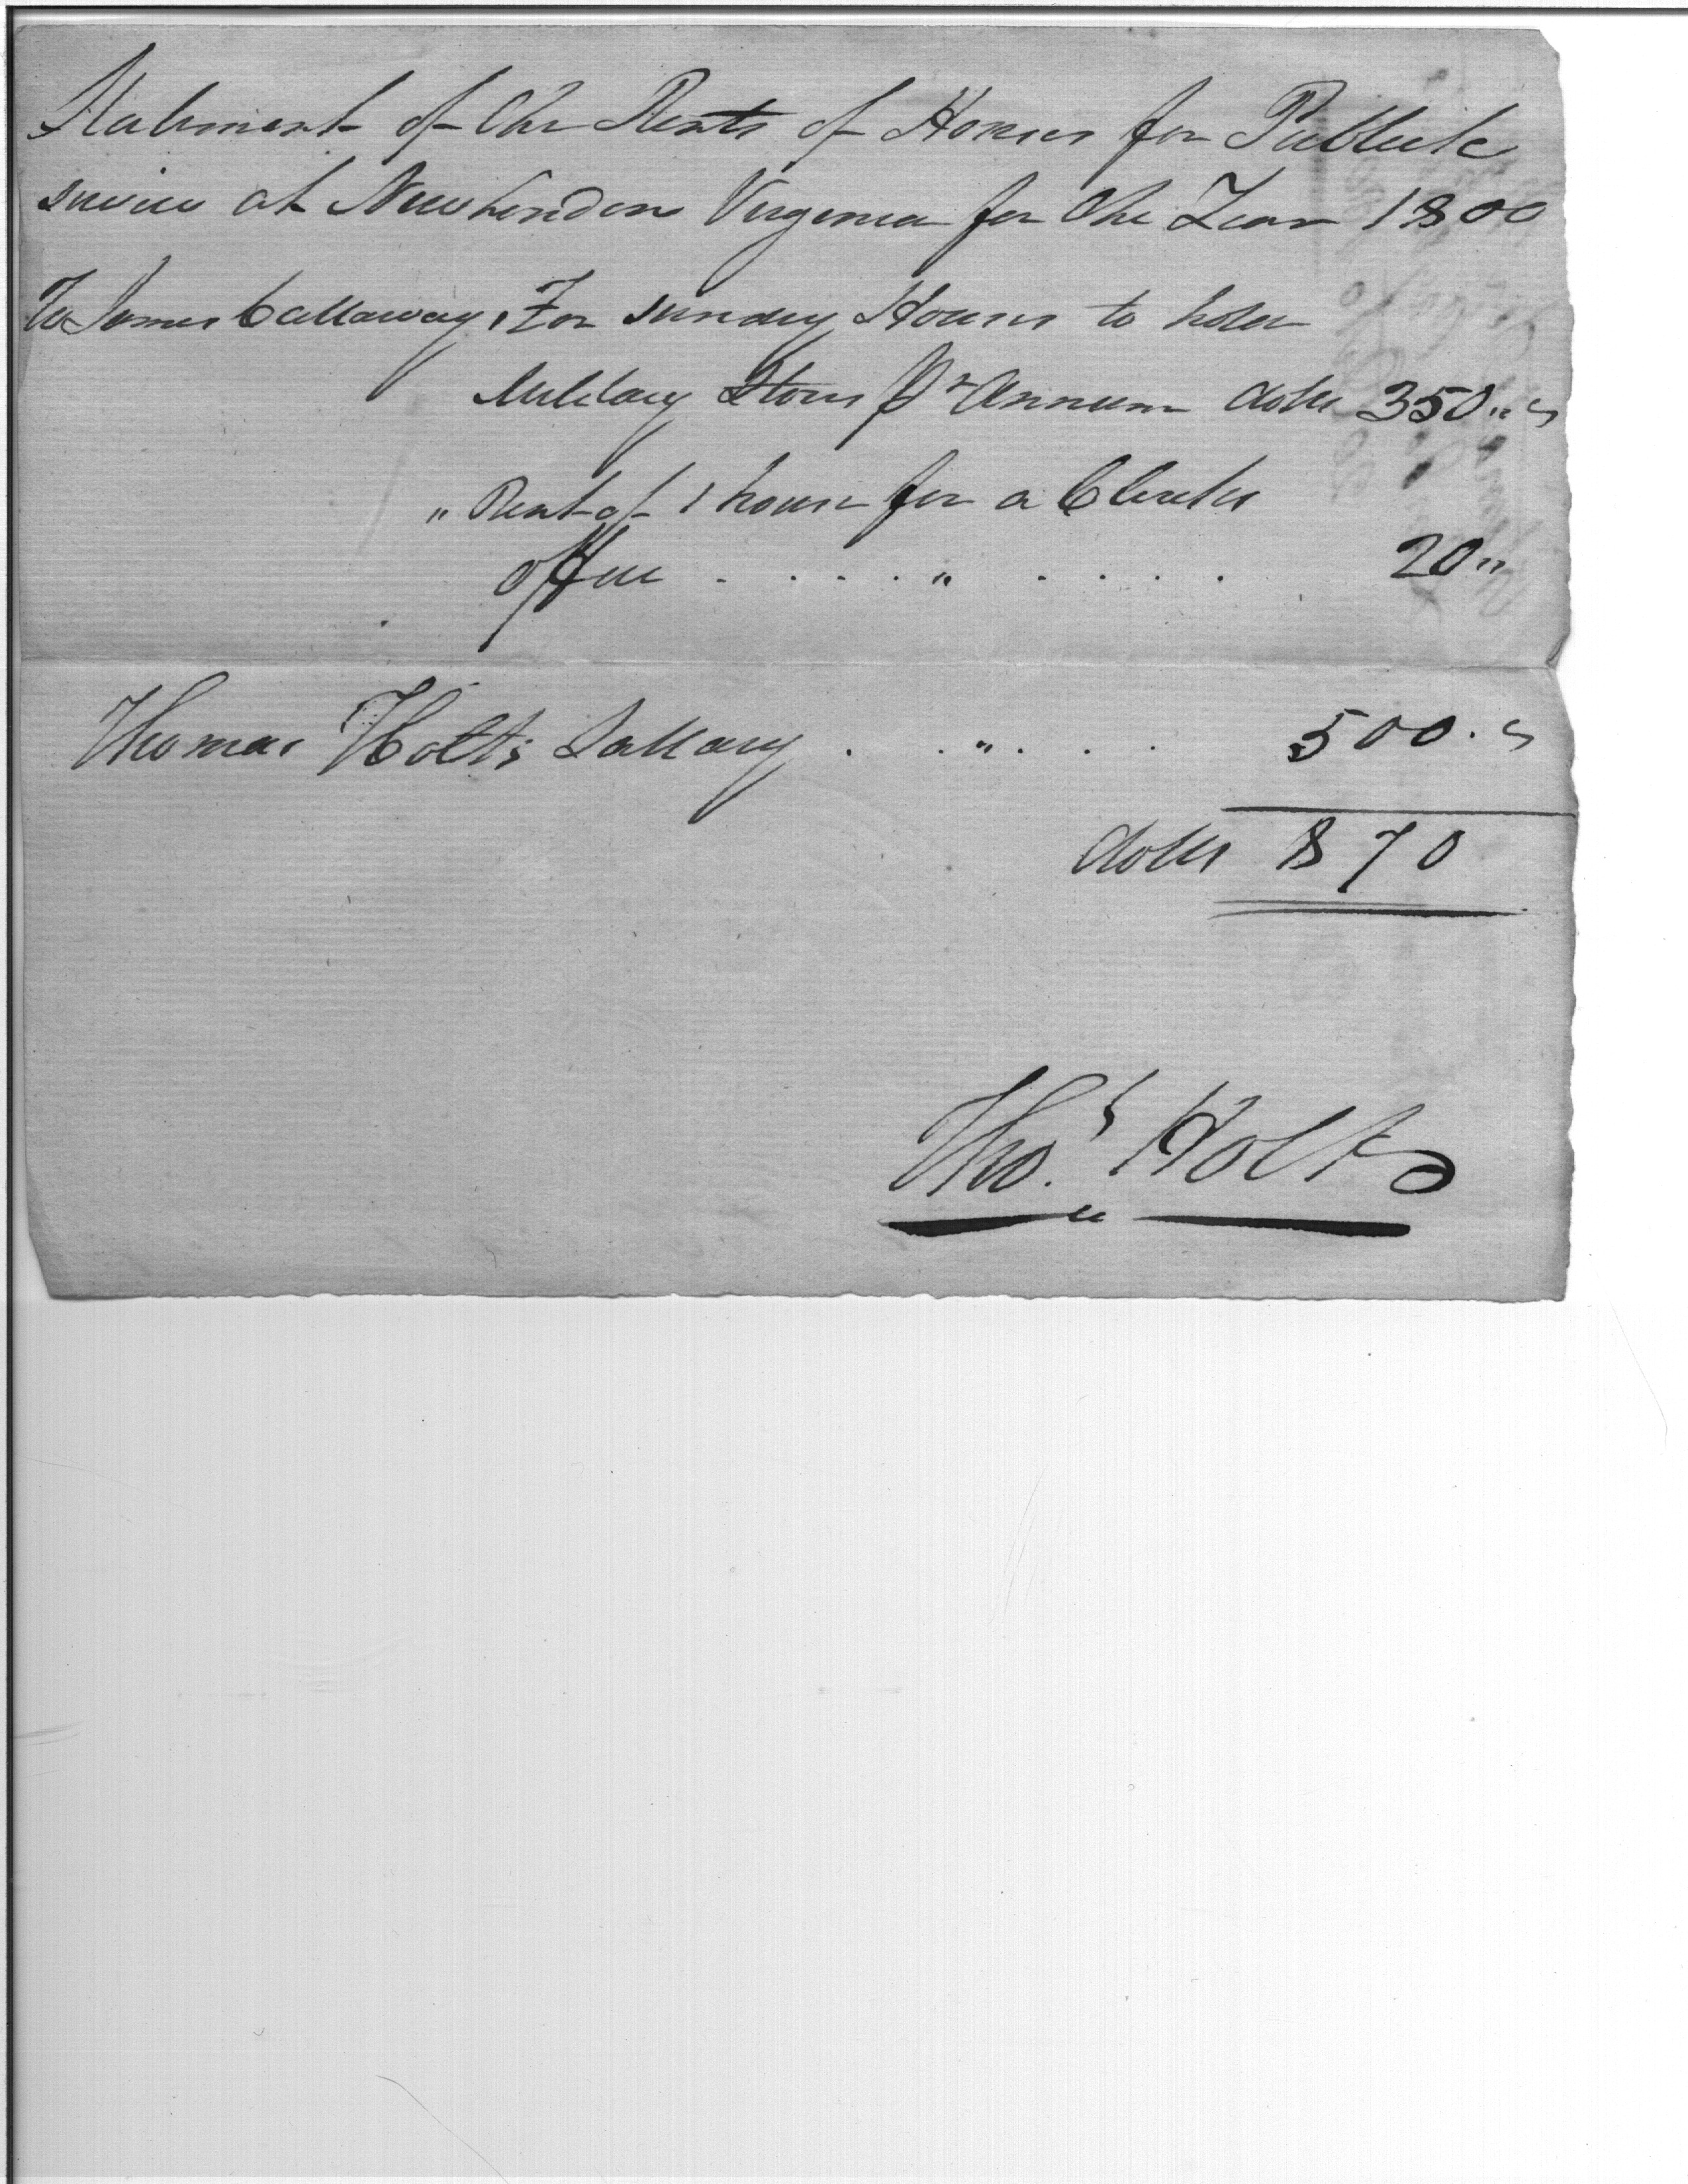 Statement of the Rents of Houses for Publick
service at New London Virginia for the Year 1800
To James Callaway, For sundry Houses to hold
Military Stores pr Annum dolls 350 "
" Rent of 1 house for a Clerks
office - . . . " . . . . 20 "
Thomas Holts Sallary . . " . . . 500 .
dolls 870
Thos. Holt